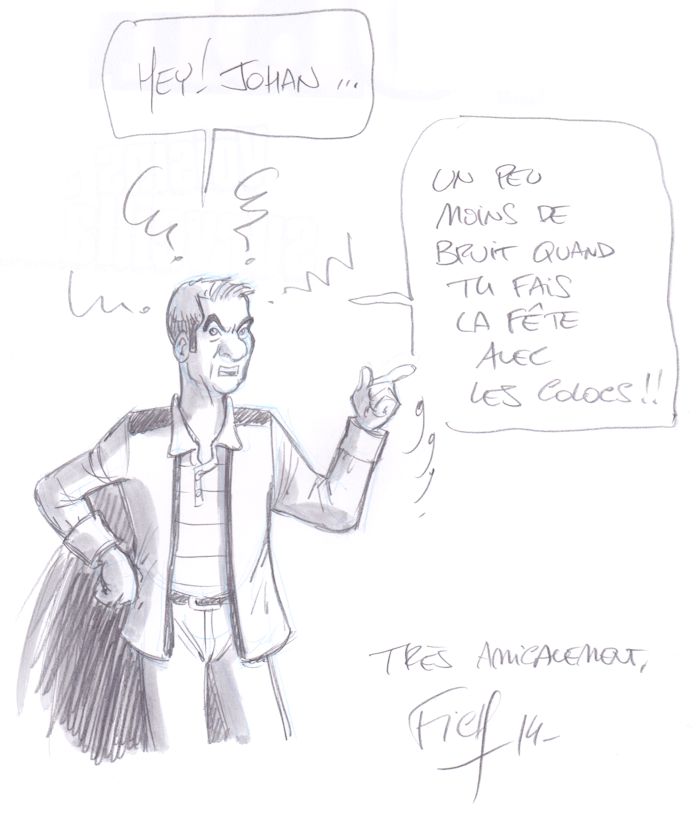 HEY! JOHAN ...
UN PEU
MOINS DE
BRUIT QUAND
TU FAIS
LA FÊTE
AVEC
LES COLOCS!!
TRÈS AMICALEMENT,
FICH 14-